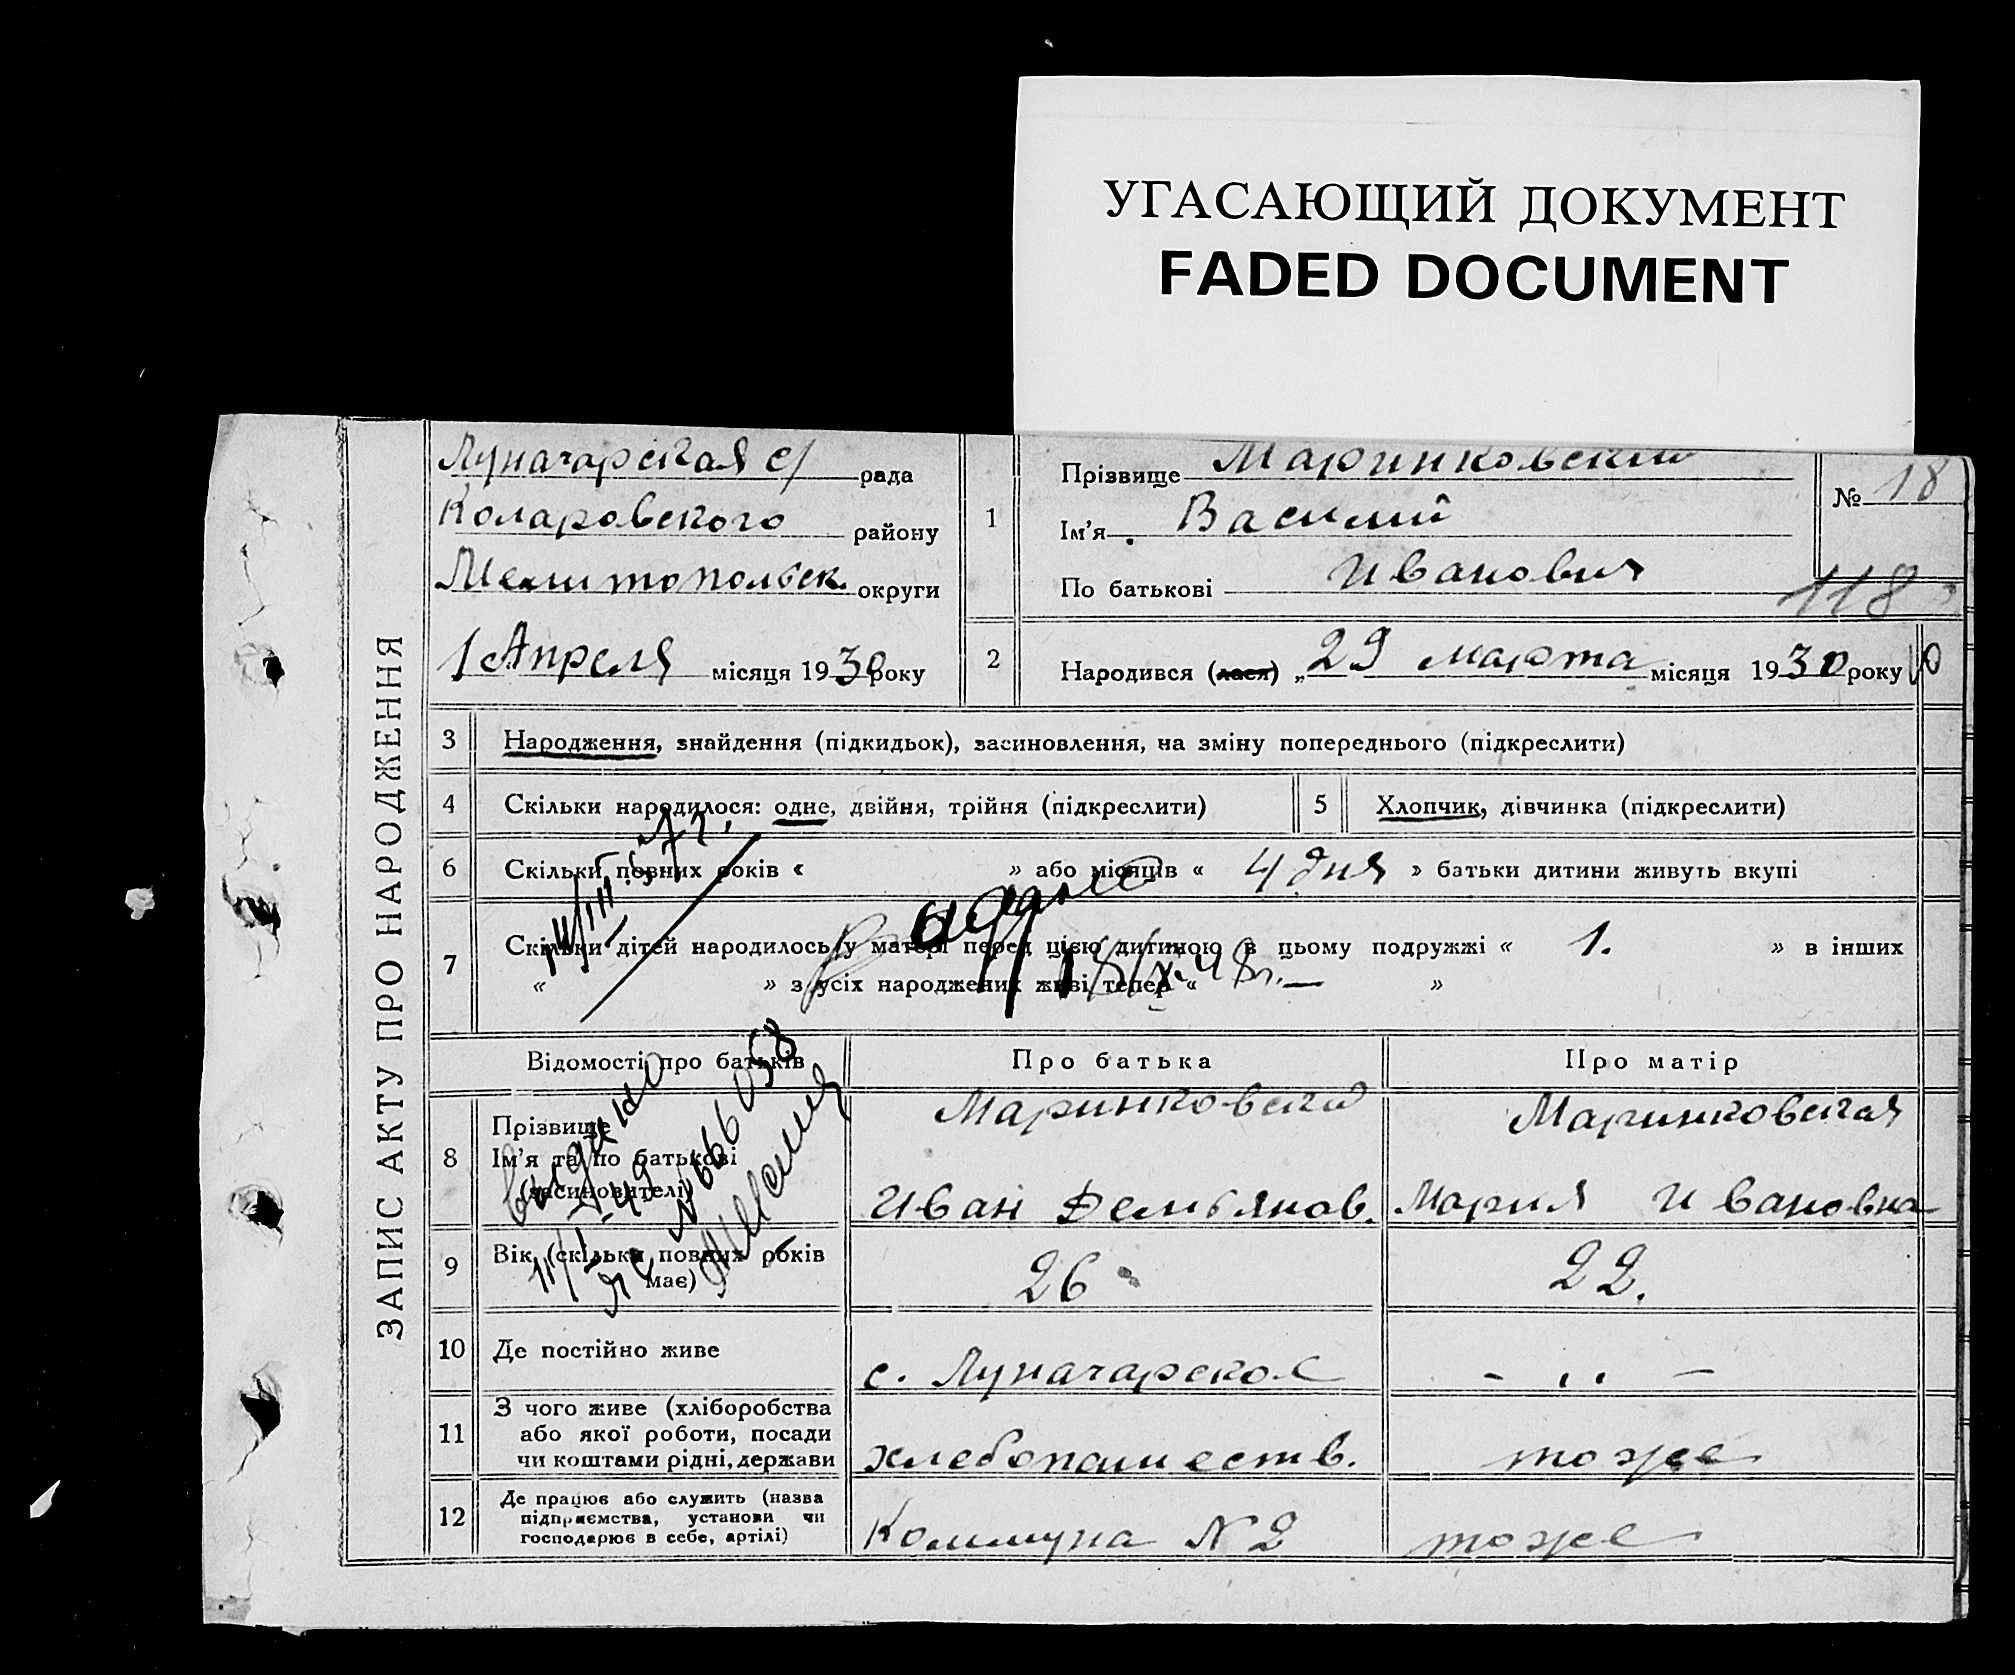 УГАСАЮЩИЙ ДОКУМЕНТ
FADED DOCUMENT
ЗАПИС АКТУ ПРО НАРОДЖЕННЯ
Луначарская с/ рада
Коларовского району
Мелитопольск. округи
1 Апреля місяця 1930 року
1
Прізвище Маринковский
Ім'я Василий
По батькові Иванович
№ 18
118
2 Народився (лася) „29 марта місяця 1930 року
3 Народження, знайдення (підкидьок), засиновлення, на зміну попереднього (підкреслити)
4 Скільки народилося: одне, двійня, трійня (підкреслити)
5 Хлопчик, дівчинка (підкреслити)
6 Скільки повних років « » або місяців « 4 дня » батьки дитини живуть вкупі
7 Скільки дітей народилось у матері перед цією дитиною в цьому подружжі « 1. » в інших
« » з усіх народжених живі тепер « — »
Відомості про батьків Про батька Про матір
8 Прізвище Маринковский Маринковская
Ім'я та по батькові
(засиновителі) Иван Демьянов. Мария Ивановна
выдано
№ 666058
9 Вік (скільки повних років
має) 26 22.
10 Де постійно живе с. Луначарское - ,, -
11 З чого живе (хліборобства
або якої роботи, посади
чи коштами рідні, держави хлебопашеств. тоже
12 Де працює або служить (назва
підприємства, установи чи
господарює в себе, артілі) Коммуна N 2 тоже